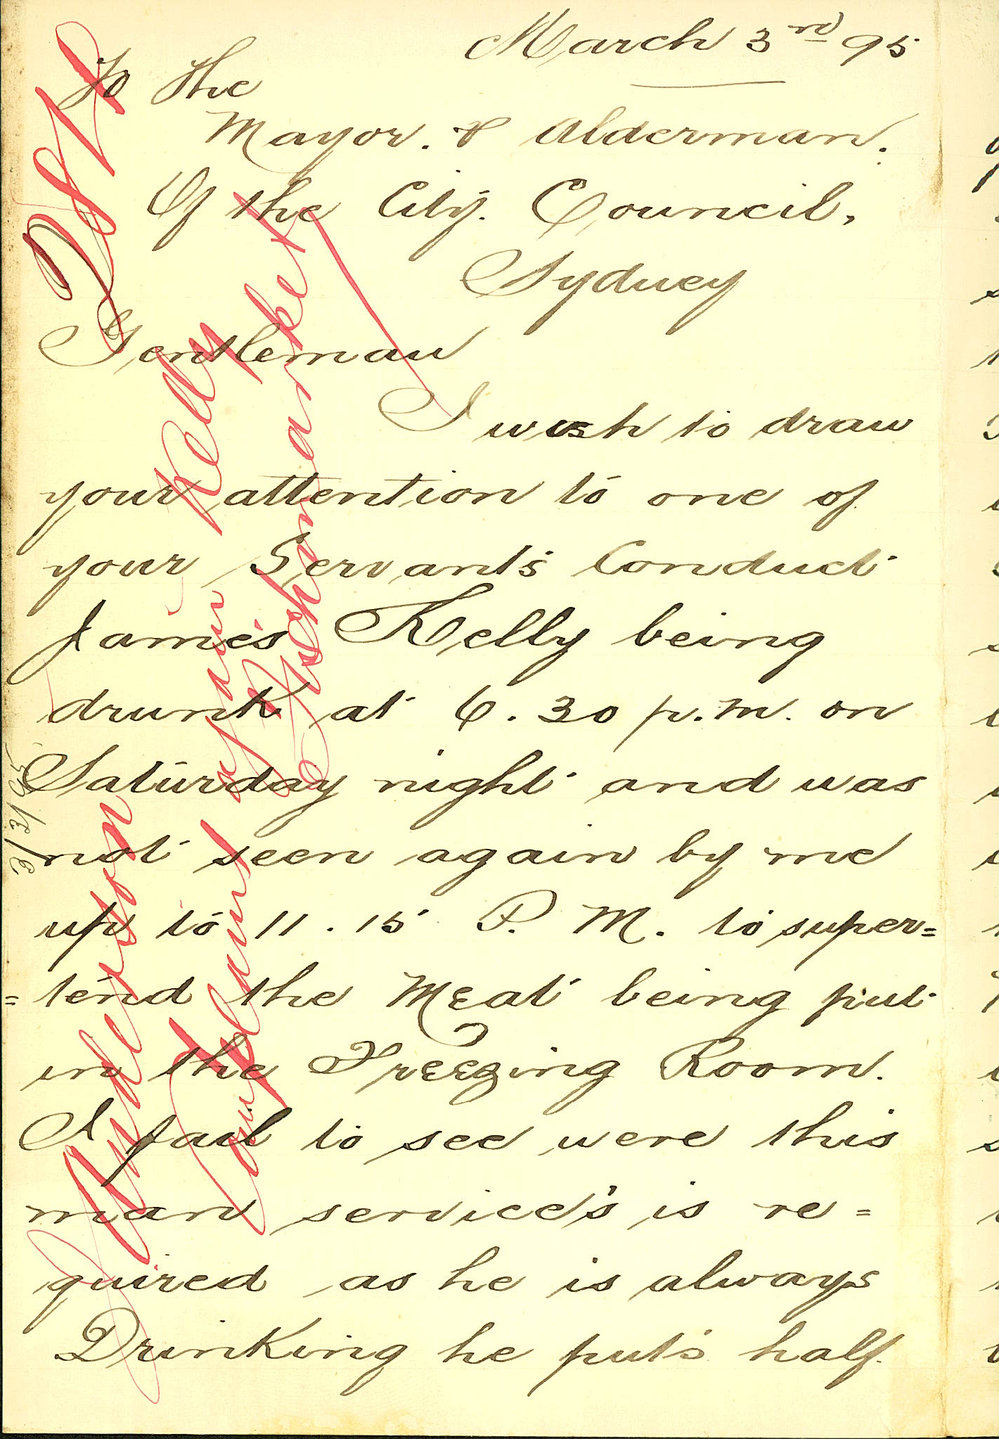 March 3rd 95
To the
Mayor. & Alderman.
Of the City. Council,
Sydney
Gentleman
I wish to draw
your attention to one of
your Servants Conduct
James Kelly being
drunk at 6.30 p.m. on
Saturday night and was
not seen again by me
up to 11.15 P. M. to super=
=tend the Meat being put
in the Freezing Room.
I fail to see were this
man service's is re=
quired as he is always
Drinking he puts half
J Anderson
Complaint again Kelly
Fishmarket